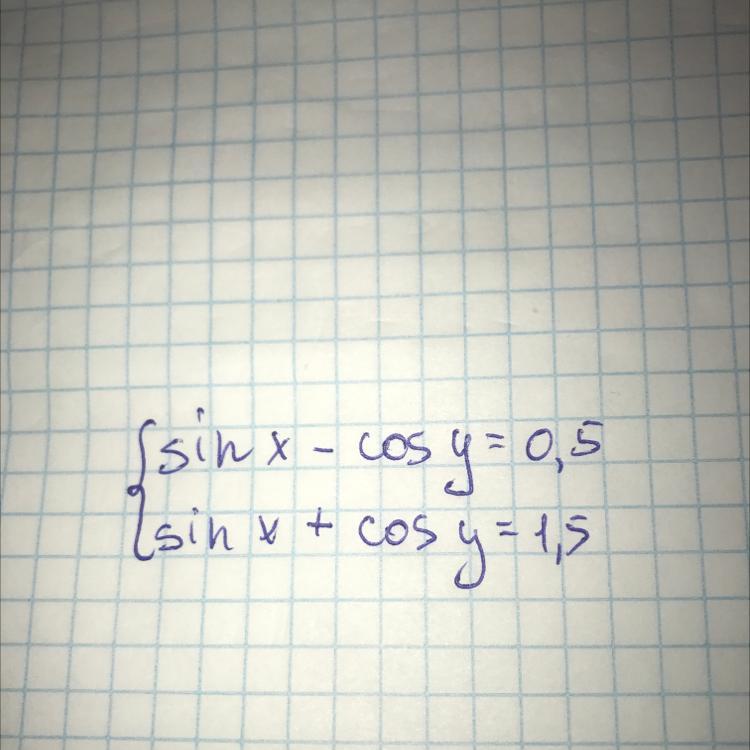 sin x - cos y = 0,5
sin x + cos y = 1,5